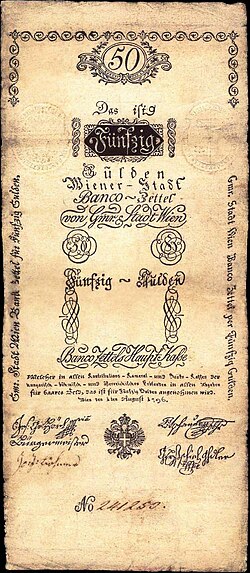 50
Das ist
Fünfzig
Gülden
Wiener-Stadt
Banco-Zettel
von Gmr. Stadt Wien
Fünfzig ~ Gülden
Banco Zettels Haupt Kasse
Welcher in allen Kontributions- Kameral- und Banko- Kassen der
in allen
für baares Geld, das ist für Fünfzig Gulden angenommen wird.
Wien den 1ten August 1796.
Bürgermeister
No 241250.
Gmr. Stadt Wien Bank Zettel für Fünfzig Gulden.
Gmr. Stadt Wien Banco Zettel per Fünfzig Gulden.